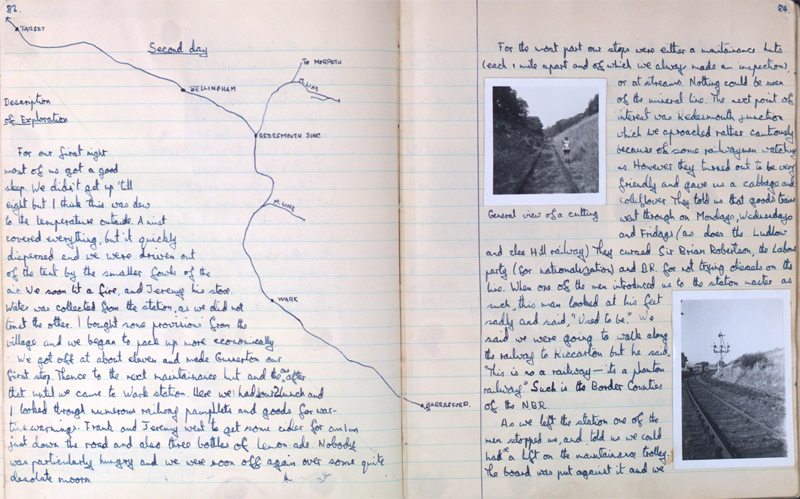 83.
TARSET
Second day
TO MORPETH
M. LINE
BELLINGHAM
REDESMOUTH JUNC.
M. LINE
WARK
BARRASFORD.
Description
of Exploration
For our first night
most of us got a good
sleep. We didn't get up 'till
eight but I think this was due
to the temperature outside. A mist
covered everything, but it quickly
dispersed and we were driven out
of the tent by the smaller fowls of the
air. We soon lit a fire, and Jeremy his stove.
Water was collected from the station, as we did not
trust the other. I bought some provisions from the
village and we began to pack up more economically.
We got off at about eleven and made Gunnerton our
first stop. Thence to the next maintainance hut and the one after
that until we came to Wark station. Here we had our lunch and
I looked through numerous railway pamphlets and goods for war-
time warnings. Frank and Jeremy went to get some cider for our
just down the road and also three bottles of lemonade. Nobody
was particularly hungry and we were soon off again over some quite
desolate moors
84.
For the most part our stops were either a maintainance huts
(each 1 mile apart and of which we always made an inspection),
or at streams. Nothing could be seen
of the mineral line. The next point of
interest was Redesmouth junction
which we aproached rather cautiously
because of some railwaymen watching
us. However they turned out to be very
friendly and gave us a cabbage and
colliflower. They told us that goods trains
went through on Mondays, Wednesdays
and Fridays (as does the Ludlow
and clee Hill railway) They cursed Sir Brian Robertson, the Labour
party (for nationalisation) and B.R. for not trying diesels on the
line. When one of the men introduced us to the station master as
such, this man looked at his feet
sadly and said, "Used to be." We
said we were going to walk along
the railway to Riccarton but he said,
"This is no a railway — its a phantom
railway" Such is the Border Counties
of the N.B.R.
As we left the station one of the
men stopped us, and told us we could
had a lift on the maintainance trolley.
The board was put against it and we
General view of a cutting